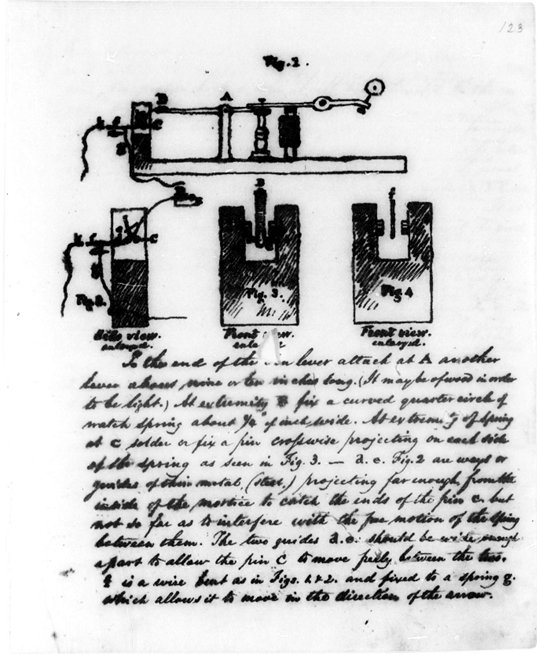 123
Fig. 1.
B
A
C
Fig. 3.
Fig. 4
Side view.
enlarged.
Front view.
Front view.
enlarged.
To the end of the lever attach at A another
lever above, nine or ten inches long. (It may be of wood in order
to be light.) At extremity B fix a curved quarter circle of
watch spring about ¼ of inch wide. At extremity of spring
at C solder or fix a pin crosswise projecting on each side
of the spring as seen in Fig. 3. — d. e. Fig. 2 are ways or
guides of thin metal (steel.) projecting far enough from the
inside of the mortice to catch the ends of the pin c. but
not so far as to interfere with the free motion of the spring
between them. The two guides d. e. should be wide enough
apart to allow the pin C to move freely between the two.
f is a wire bent as in Figs. 1 & 2. and fixed to a spring g.
which allows it to move in the direction of the arrow.